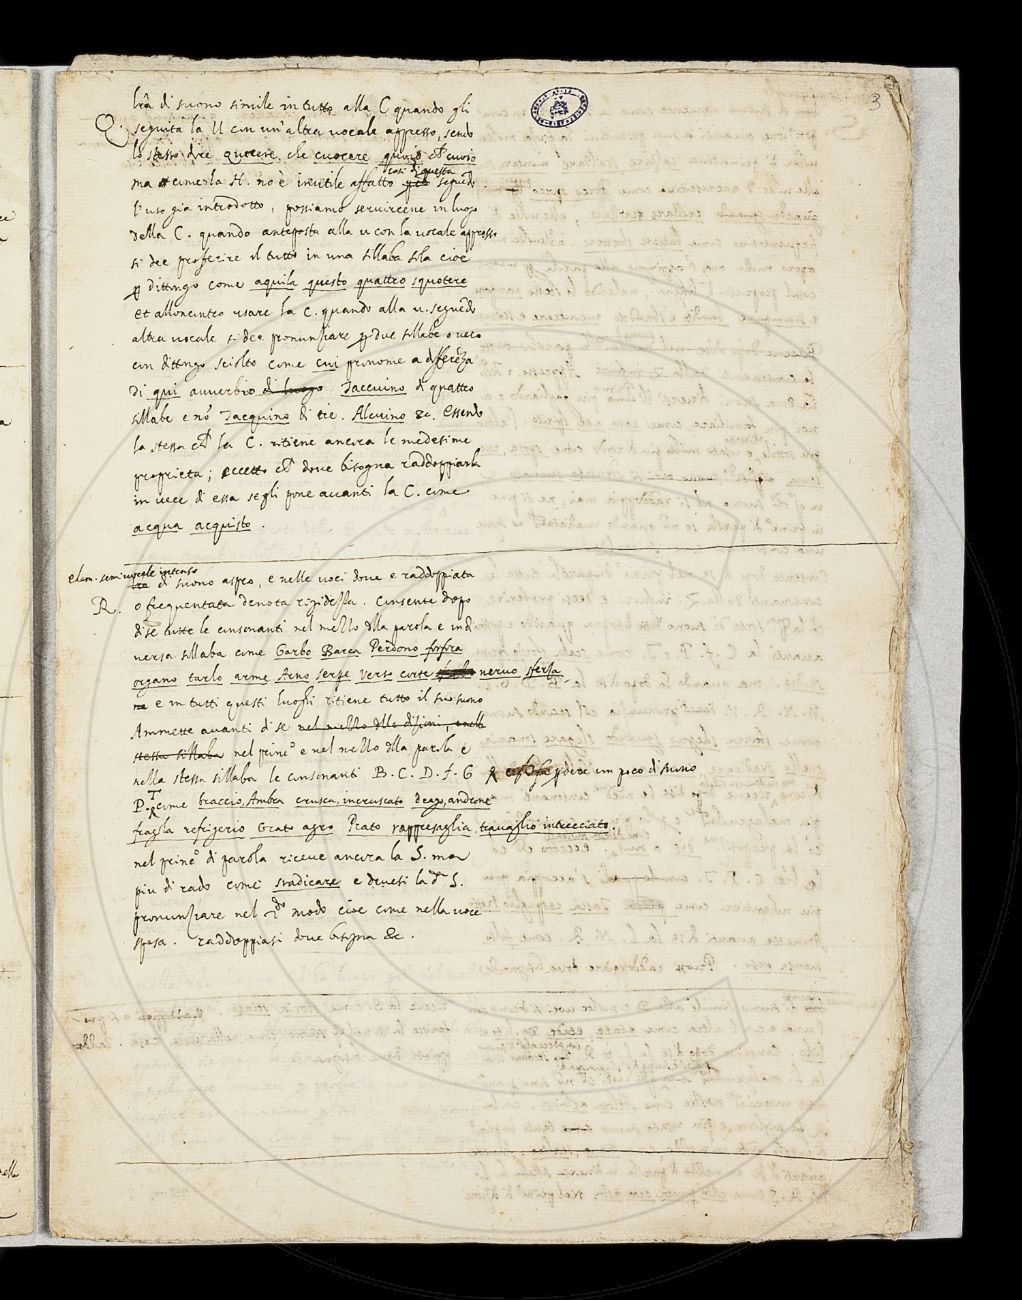 3
lrã di suono simile in tutto alla C quando gli
Q. seguita la U con un'altra vocale appresso, sendo
lo stesso dire quocere, che cuocere quoio et cuoio
ma come la H. no è inutile affatto così di questa seguẽdo
l'uso gia introdotto, possiamo servircene in luogo
della C. quando anteposta alla u con la vocale appresso
si dee proferire il tutto in una sillaba sola cioè
ꝑ dittongo come aquila questo quattro squotere
et all'oncontro usare la C. quando alla u. seguẽdo
altra vocale si dee pronunziare ꝑ due sillabe o vero
con dittongo sciolto come cui pronome a differẽza
di qui avverbio di luogo Taccuino di quattro
sillabe e nõ Jacquino di tre. Alcuino &c. Essendo
la stessa che la C. ritiene ancora le medesime
proprieta; eccetto che dove bisogna raddoppiarla
in vece di essa se gli pone avanti la C. come
acqua acquisto.
elem. semivocale
R. lrã di suono aspro, e nelle voci dove e raddoppiata
o frequentata denota rigidezza. Consente dopo
di se tutte le consonanti nel mezzo dlla parola e in di
versa sillaba come Garbo Barca Perdono forfora
organo tarlo arme Arno serpe verso corte nervo sferza
e in tutti questi luoghi ritiene tutto il suo suono
Ammette avanti di se nel mezzo delle dizioni, e nella
stessa sillaba nel princº e nel mezzo dlla parola e
nella stessa sillaba le consonanti B. C. D. f. G ꝑdere un poco di suono
P. T come braccio, Ambra crusca, incrustato drago, androne
fragla refrigerio Grato agro Prato rappresaglia, travaglio intrecciato.
nel princº di parola riceve ancora la S. ma
piu di rado come sradicare e devesi la da S.
pronunziare nel 2do modo cioe come nella voce
sposa. raddoppiasi dove bisogna &c.